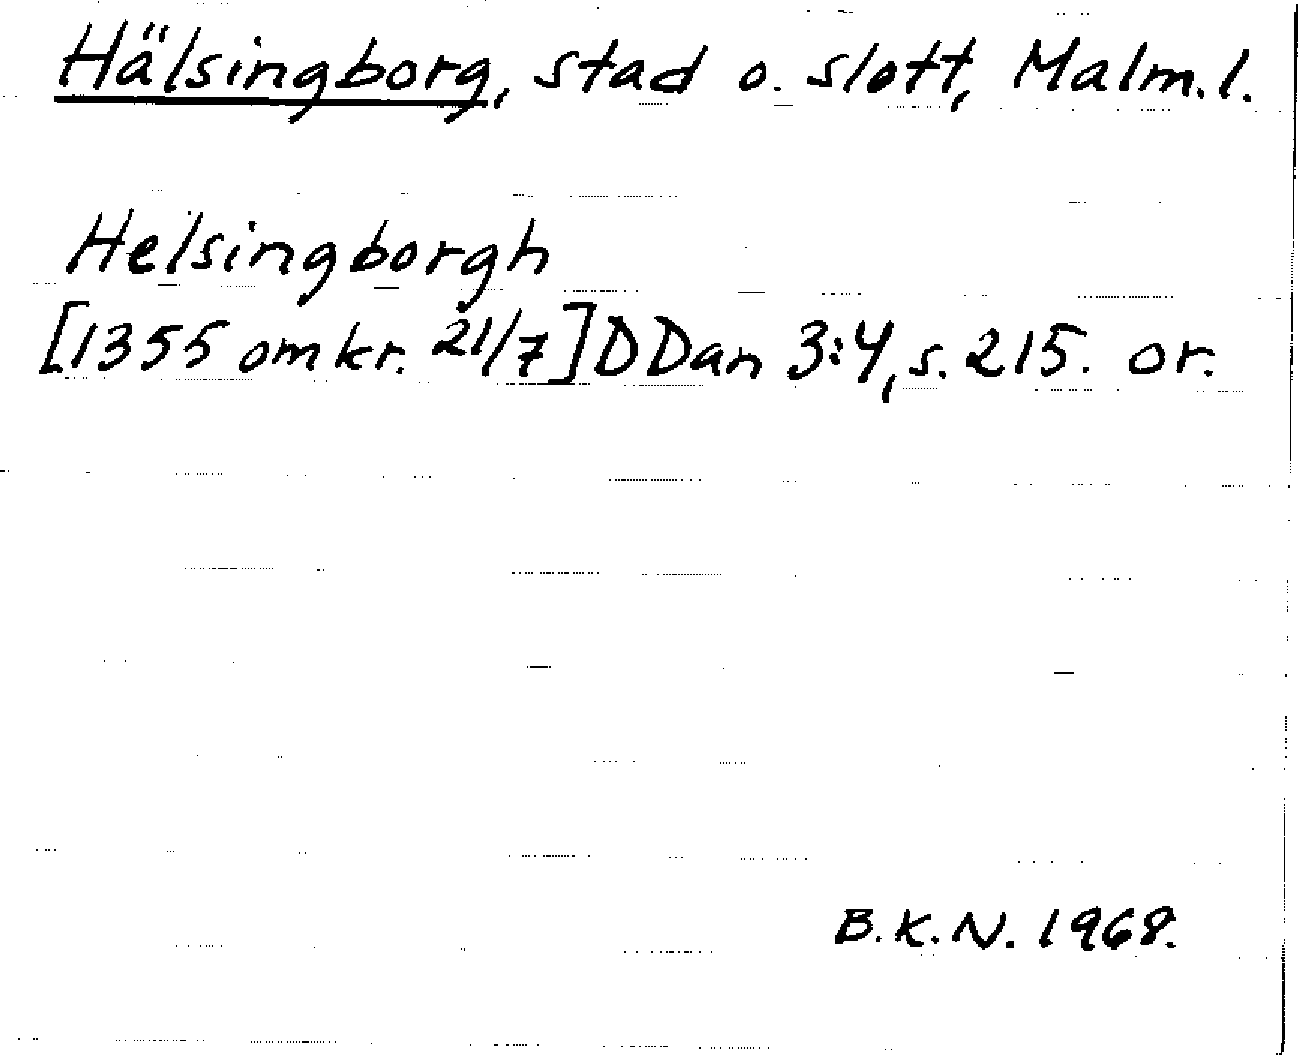 Hälsingborg, stad o. slott, Malm. l.
Helsingborgh
[1355 omkr. 21/7] DDan 3:4, s. 215. or.
B.K.N. 1968.